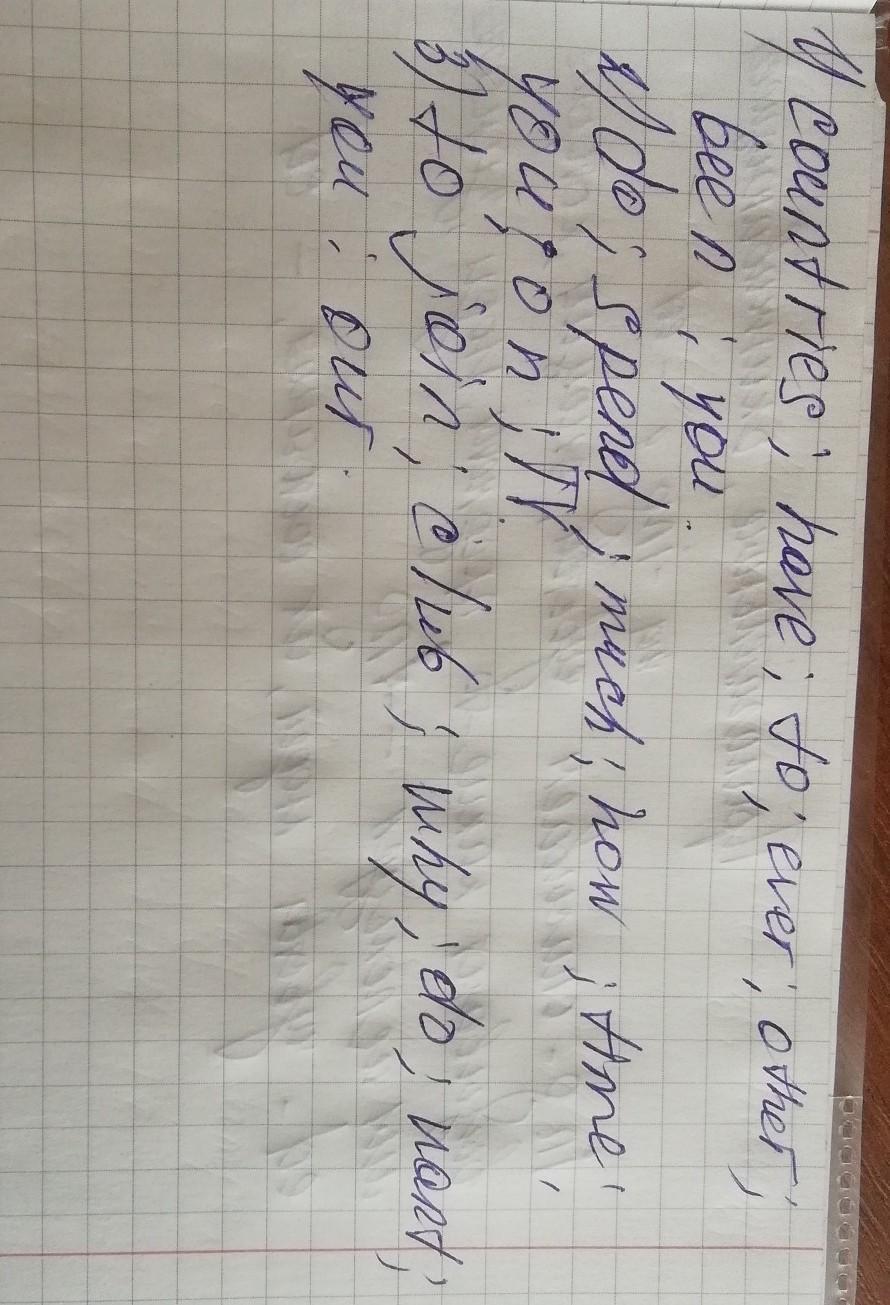 1) countries; have; to; ever; other;
been; you.
2) do; spend; much; how; time;
you; on; TV;
3) to join; club; why; do; want;
you; our.